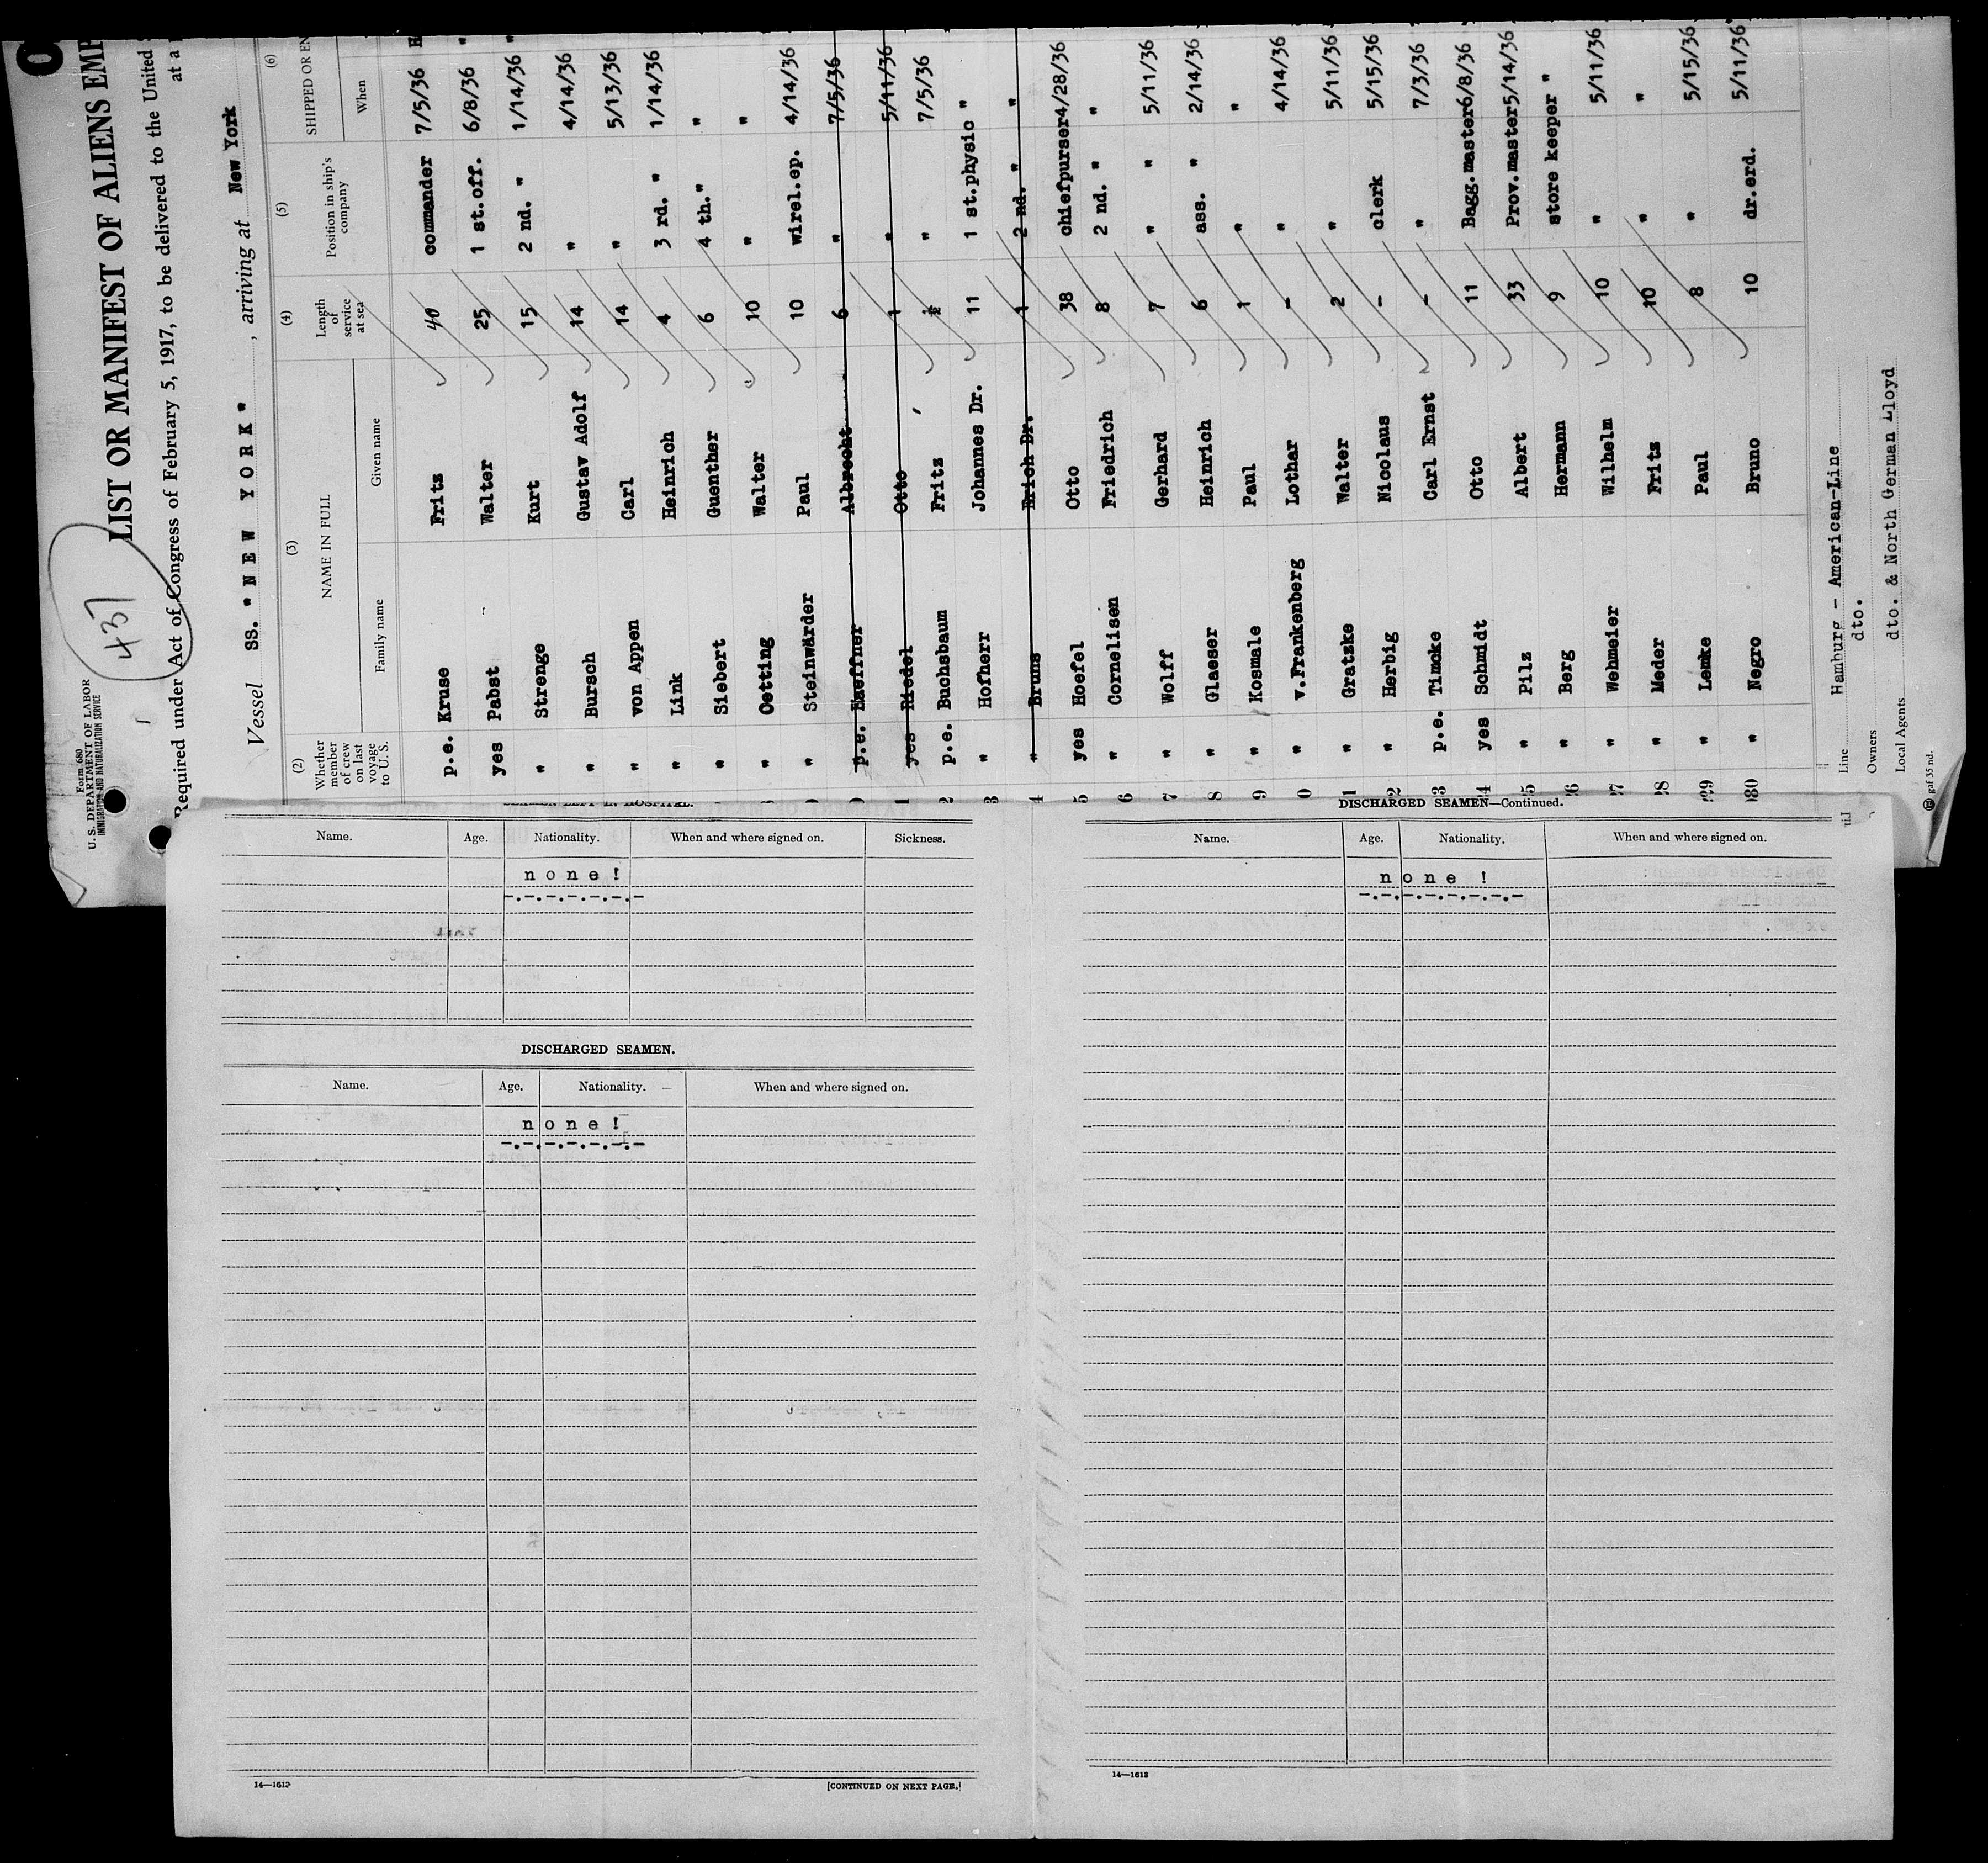 Form 680
U. S. DEPARTMENT OF LABOR
IMMIGRATION AND NATURALIZATION SERVICE
437
LIST OR MANIFEST OF ALIENS EMP
Required under Act of Congress of February 5, 1917, to be delivered to the United
at a
Vessel SS. "NEW YORK" , arriving at New York
(2) (3) (4) (5) (6)
Whether member of crew on last voyage to U. S. NAME IN FULL Length of service at sea Position in ship's company SHIPPED OR EN
Family name Given name When
p.e. Kruse Fritz 40 commander 7/5/36 H
yes Pabst Walter 25 1 st.off. 6/8/36 "
" Strenge Kurt 15 2 nd. " 1/14/36 "
" Bursch Gustav Adolf 14 " 4/14/36
" von Appen Carl 14 " 5/13/36
" Link Heinrich 4 3 rd. " 1/14/36
" Siebert Guenther 6 4 th." "
" Oetting Walter 10 " "
" Steinwärder Paul 10 wirel.ep. 4/14/36
p.e. Albrecht 6 " 7/5/36
yes Riedel Otto 1 " 5/11/36
p.e. Buchsbaum Fritz ½ " 7/5/36
" Hofherr Johannes Dr. 11 1 st.physic "
" Bruns Erich Dr. 1 2 nd. " "
yes Hoefel Otto 38 chiefpurser 4/28/36
" Cornelisen Friedrich 8 2 nd. " "
" Wolff Gerhard 7 " " 5/11/36
" Glaeser Heinrich 6 ass. " 2/14/36
" Kosmale Paul 1 " "
" v.Frankenberg Lothar - " 4/14/36
" Gratzke Walter 2 " 5/11/36
" Herbig Nicolaus - clerk 5/15/36
p.e. Timcke Carl Ernst - " 7/3/36
yes Schmidt Otto 11 Bagg.master 6/8/36
" Pilz Albert 33 Prov.master 5/14/36
" Berg Hermann 9 store keeper "
" Wehmeier Wilhelm 10 " 5/11/36
" Meder Fritz 10 " "
" Lemke Paul 8 " 5/15/36
" Negro Bruno 10 dr.erd. 5/11/36
Line Hamburg - American-Line
Owners dto.
Local Agents dto. & North German Lloyd
gaf 35 nd.
Name. Age. Nationality. When and where signed on. Sickness.
none!
-.-.-.-.-.-.-
DISCHARGED SEAMEN.
Name. Age. Nationality. When and where signed on.
none!
-.-.-.-.-.-.-
14—1613
[CONTINUED ON NEXT PAGE.]
DISCHARGED SEAMEN—Continued.
Name. Age. Nationality. When and where signed on.
none !
-.-.-.-.-.-.-.-
14—1613